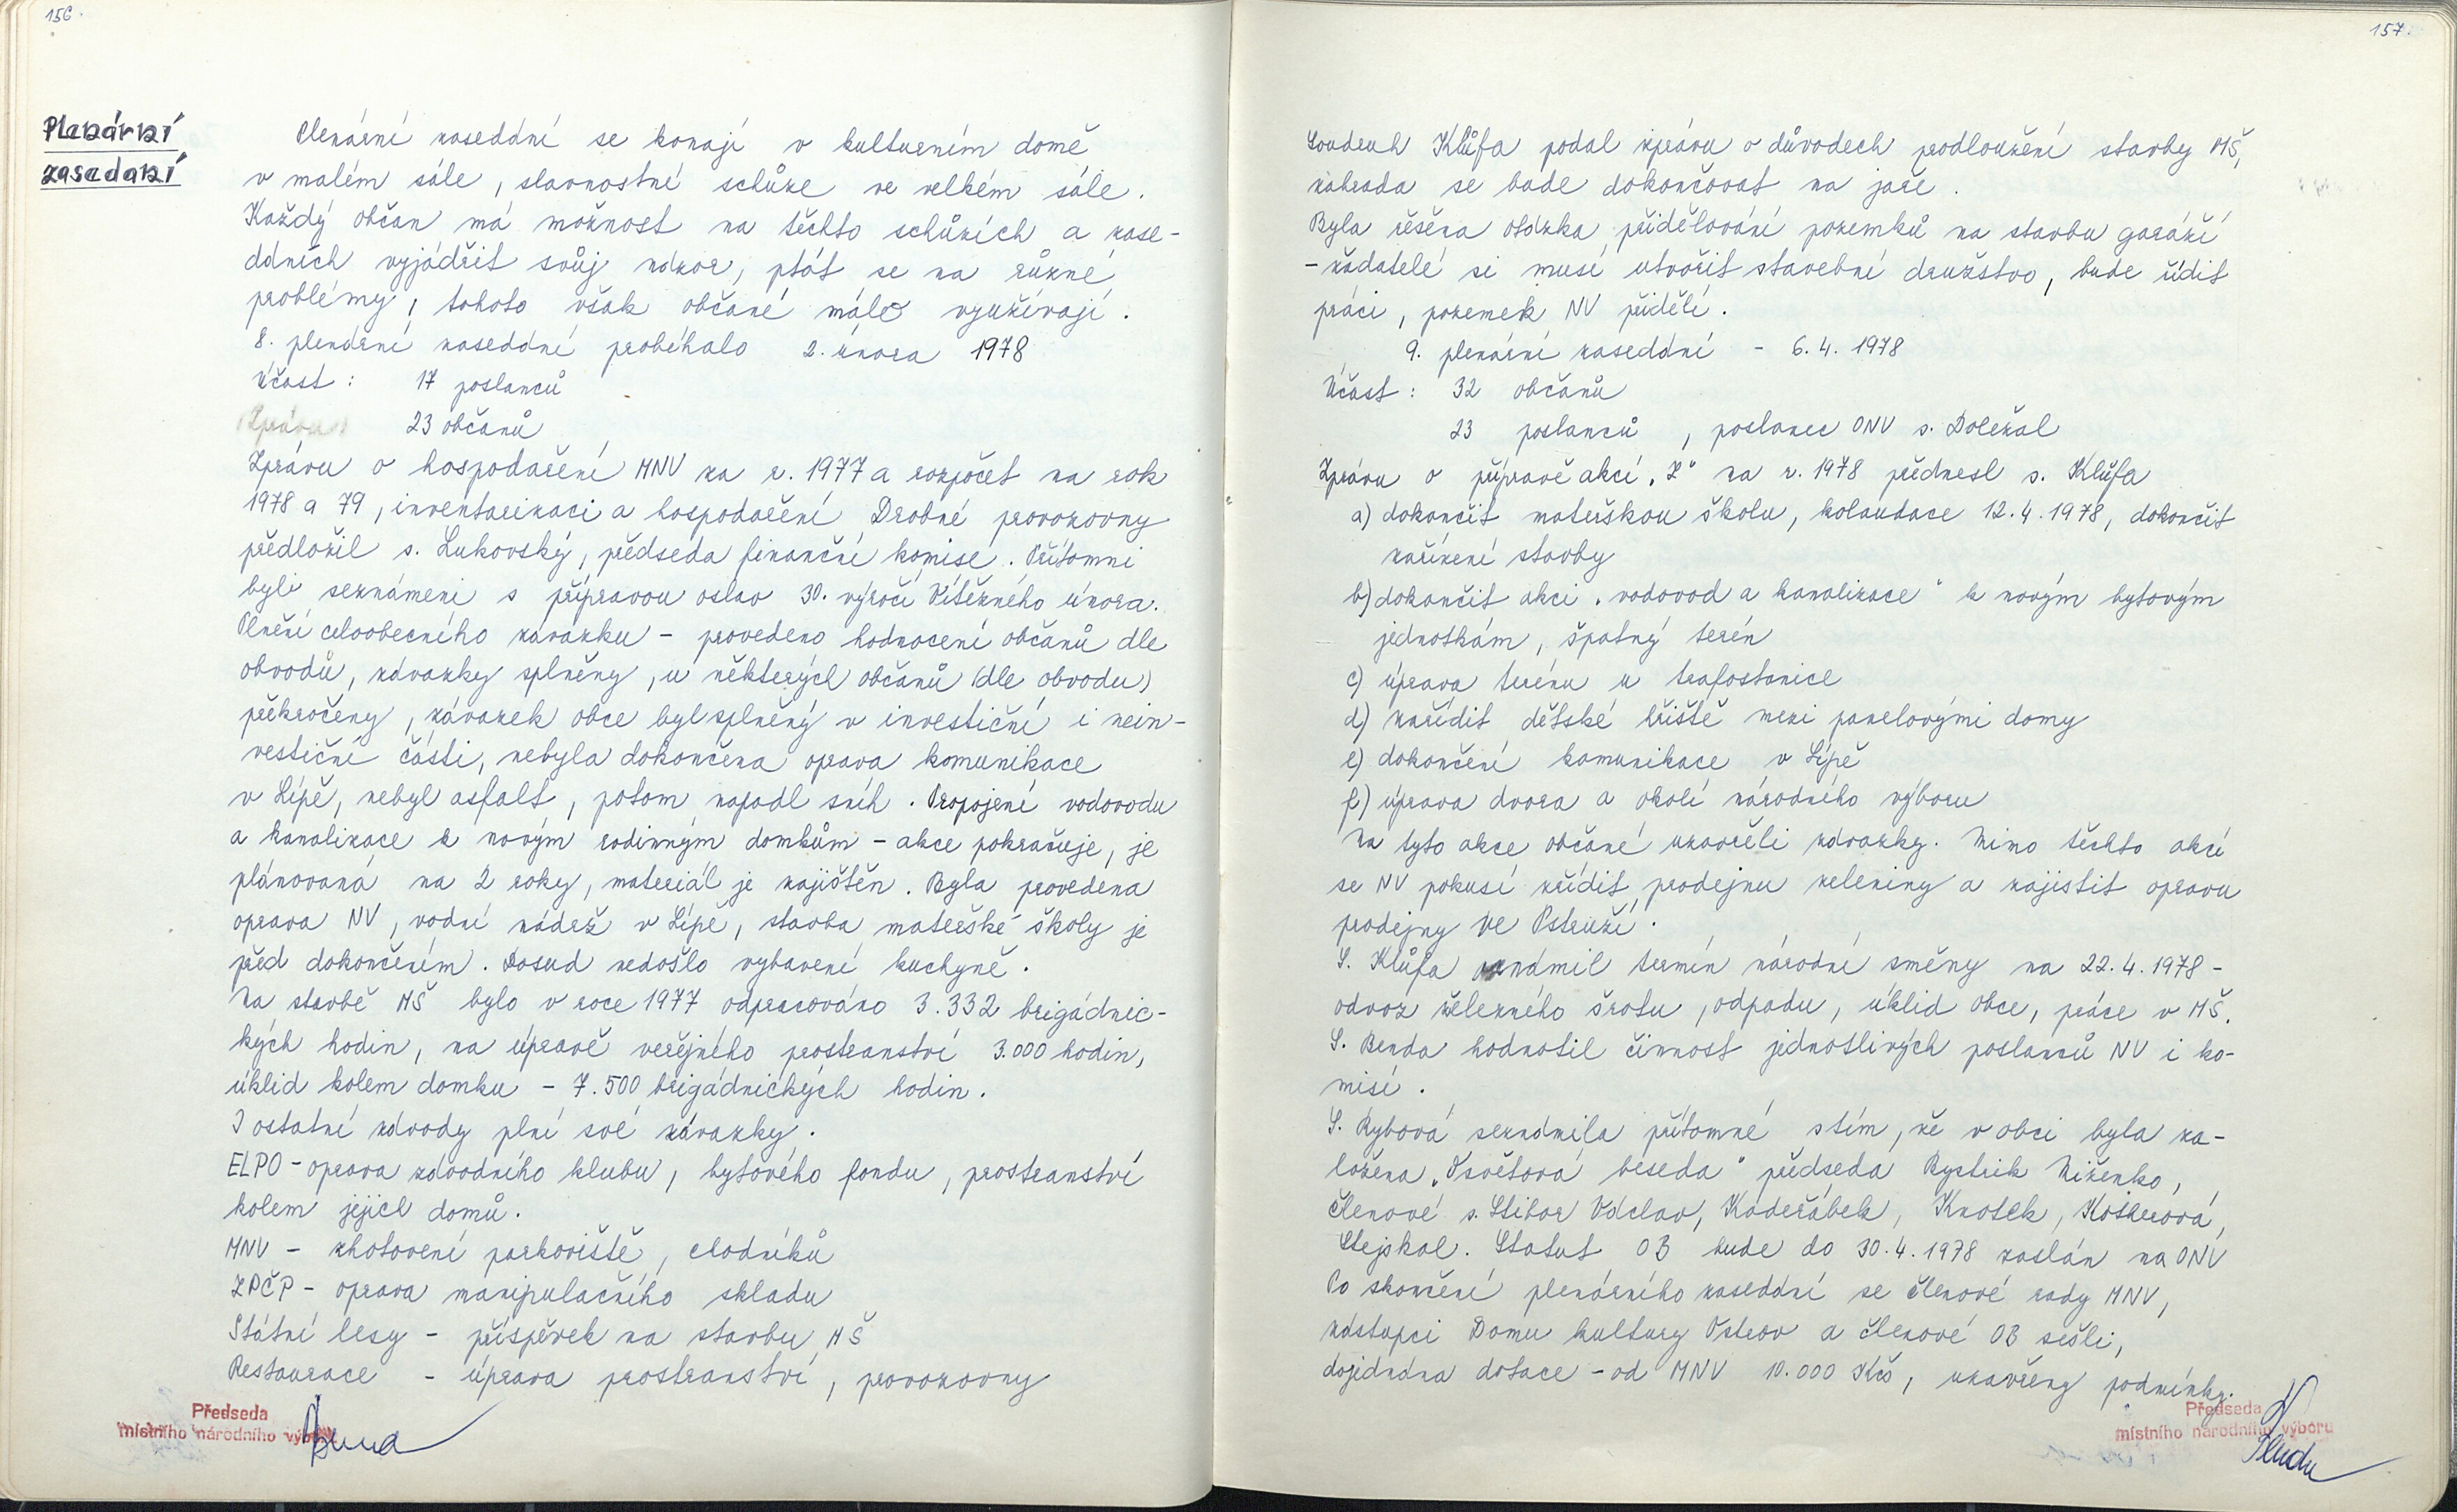 156.
Plenární
zasedání
Plenární zasedání se konají v kulturním domě
v malém sále, slavnostní schůze ve velkém sále.
Každý občan má možnost na těchto schůzích a zase-
dáních vyjádřit svůj názor, ptát se na různé
problémy, tohoto však občané málo využívají.
8. plenární zasedání probíhalo 2. února 1978
Účast: 17 poslanců
Zprávu 23 občanů
Zprávu o hospodaření MNV za r. 1977 a rozpočet na rok
1978 a 79, inventarizaci a hospodaření Drobné provozovny
předložil s. Lukovský, předseda finanční komise. Přítomni
byli seznámeni s přípravou oslav 30. výročí Vítězného února.
Plnění celoobecního závazku - provedeno hodnocení občanů dle
obvodů, závazky splněny, u některých občanů (dle obvodu)
překročeny, závazek obce byl splněný v investiční i nein-
vestiční části, nebyla dokončena oprava komunikace
v Lípě, nebyl asfalt, potom napadl sníh. Propojení vodovodu
a kanalizace k novým rodinným domkům - akce pokračuje, je
plánovaná na 2 roky, materiál je zajištěn. Byla provedena
oprava NV, vodní nádrž v Lípě, stavba mateřské školy je
před dokončením. Dosud nedošlo vybavení kuchyně.
Na stavbě MŠ bylo v roce 1977 odpracováno 3.332 brigádnic-
kých hodin, na úpravě veřejného prostranství 3.000 hodin,
úklid kolem domku - 7.500 brigádnických hodin.
I ostatní závody plní své závazky.
ELPO - oprava závodního klubu, bytového fondu, prostranství
kolem jejich domů.
MNV - zhotovení parkoviště, chodníků
ZPČP - oprava manipulačního skladu
Státní lesy - příspěvek na stavbu MŠ
Restaurace - úprava prostranství, provozovny
Předseda
místního národního výboru
157.
Soudruh Klůfa podal zprávu o důvodech prodloužení stavby MŠ,
zahrada se bude dokončovat na jaře.
Byla řešena otázka přidělování pozemků na stavbu garáží
- žadatelé si musí utvořit stavební družstvo, bude řídit
práci, pozemek NV přidělí.
9. plenární zasedání - 6.4.1978
Účast: 32 občanů
23 poslanců, poslanec ONV s. Doležal
Zprávu o přípravě akcí „Z“ na r. 1978 přednesl s. Klůfa
a) dokončit mateřskou školu, kolaudace 12.4.1978, dokončit
zařízení stavby
b) dokončit akci „vodovod a kanalizace“ k novým bytovým
jednotkám, špatný terén
c) úprava terénu u trafostanice
d) zařídit dětské hřiště mezi panelovými domy
e) dokončení komunikace v Lípě
f) úprava dvora a okolí národního výboru
Na tyto akce občané uzavřeli závazky. Mimo těchto akcí
se NV pokusí zřídit prodejnu zeleniny a zajistit opravu
prodejny ve Pstruží.
S. Klůfa oznámil termín národní směny na 22.4.1978 -
odvoz železného šrotu, odpadu, úklid obce, práce v MŠ.
S. Benda hodnotil činnost jednotlivých poslanců NV i ko-
misí.
S. Rybová seznámila přítomné stím, že v obci byla za-
ložena „Osvětová beseda“ předseda Bystrik Niženko,
členové s. Stibor Václav, Kadeřábek, Knotek, Košnerová,
Stejskal. Statut OB bude do 30.4.1978 zaslán na ONV
Po skončení plenárního zasedání se členové rady MNV,
zástupci Domu kultury Ostrov a členové OB sešli,
dojednána dotace - od MNV 10.000 Kčs, uzavřeny podmínky.
Předseda
místního národního výboru